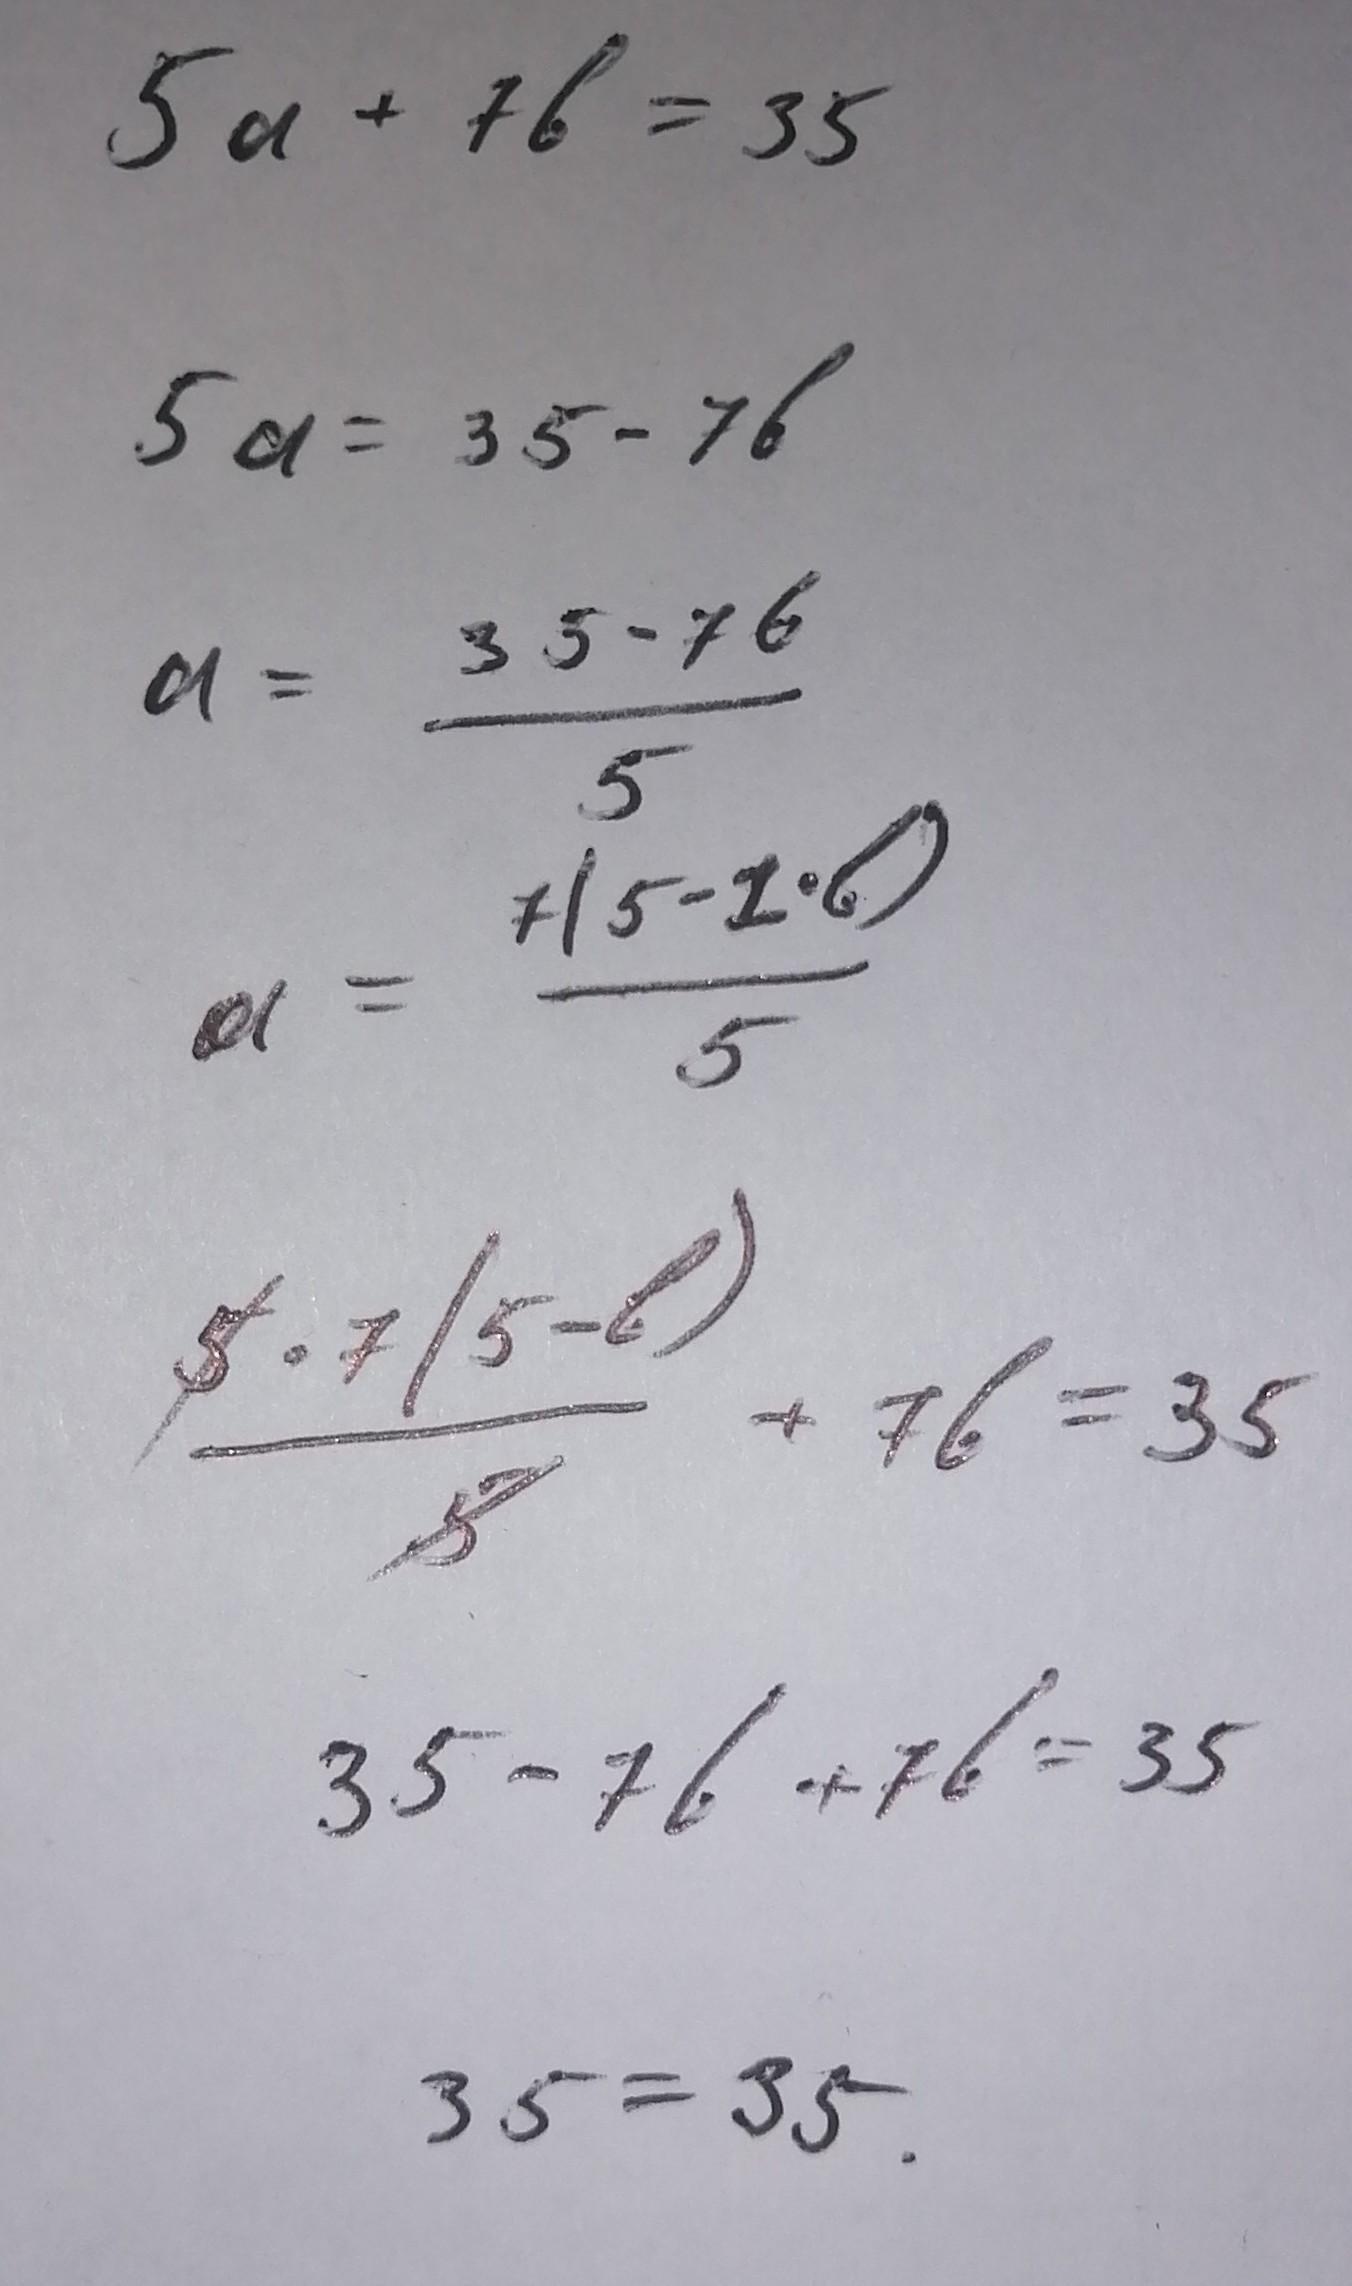 5a + 7b = 35
5a = 35 - 7b
a = (35 - 7b) / 5
a = 7(5 - 1·b) / 5
5·7(5 - b) / 5 + 7b = 35
35 - 7b + 7b = 35
35 = 35.